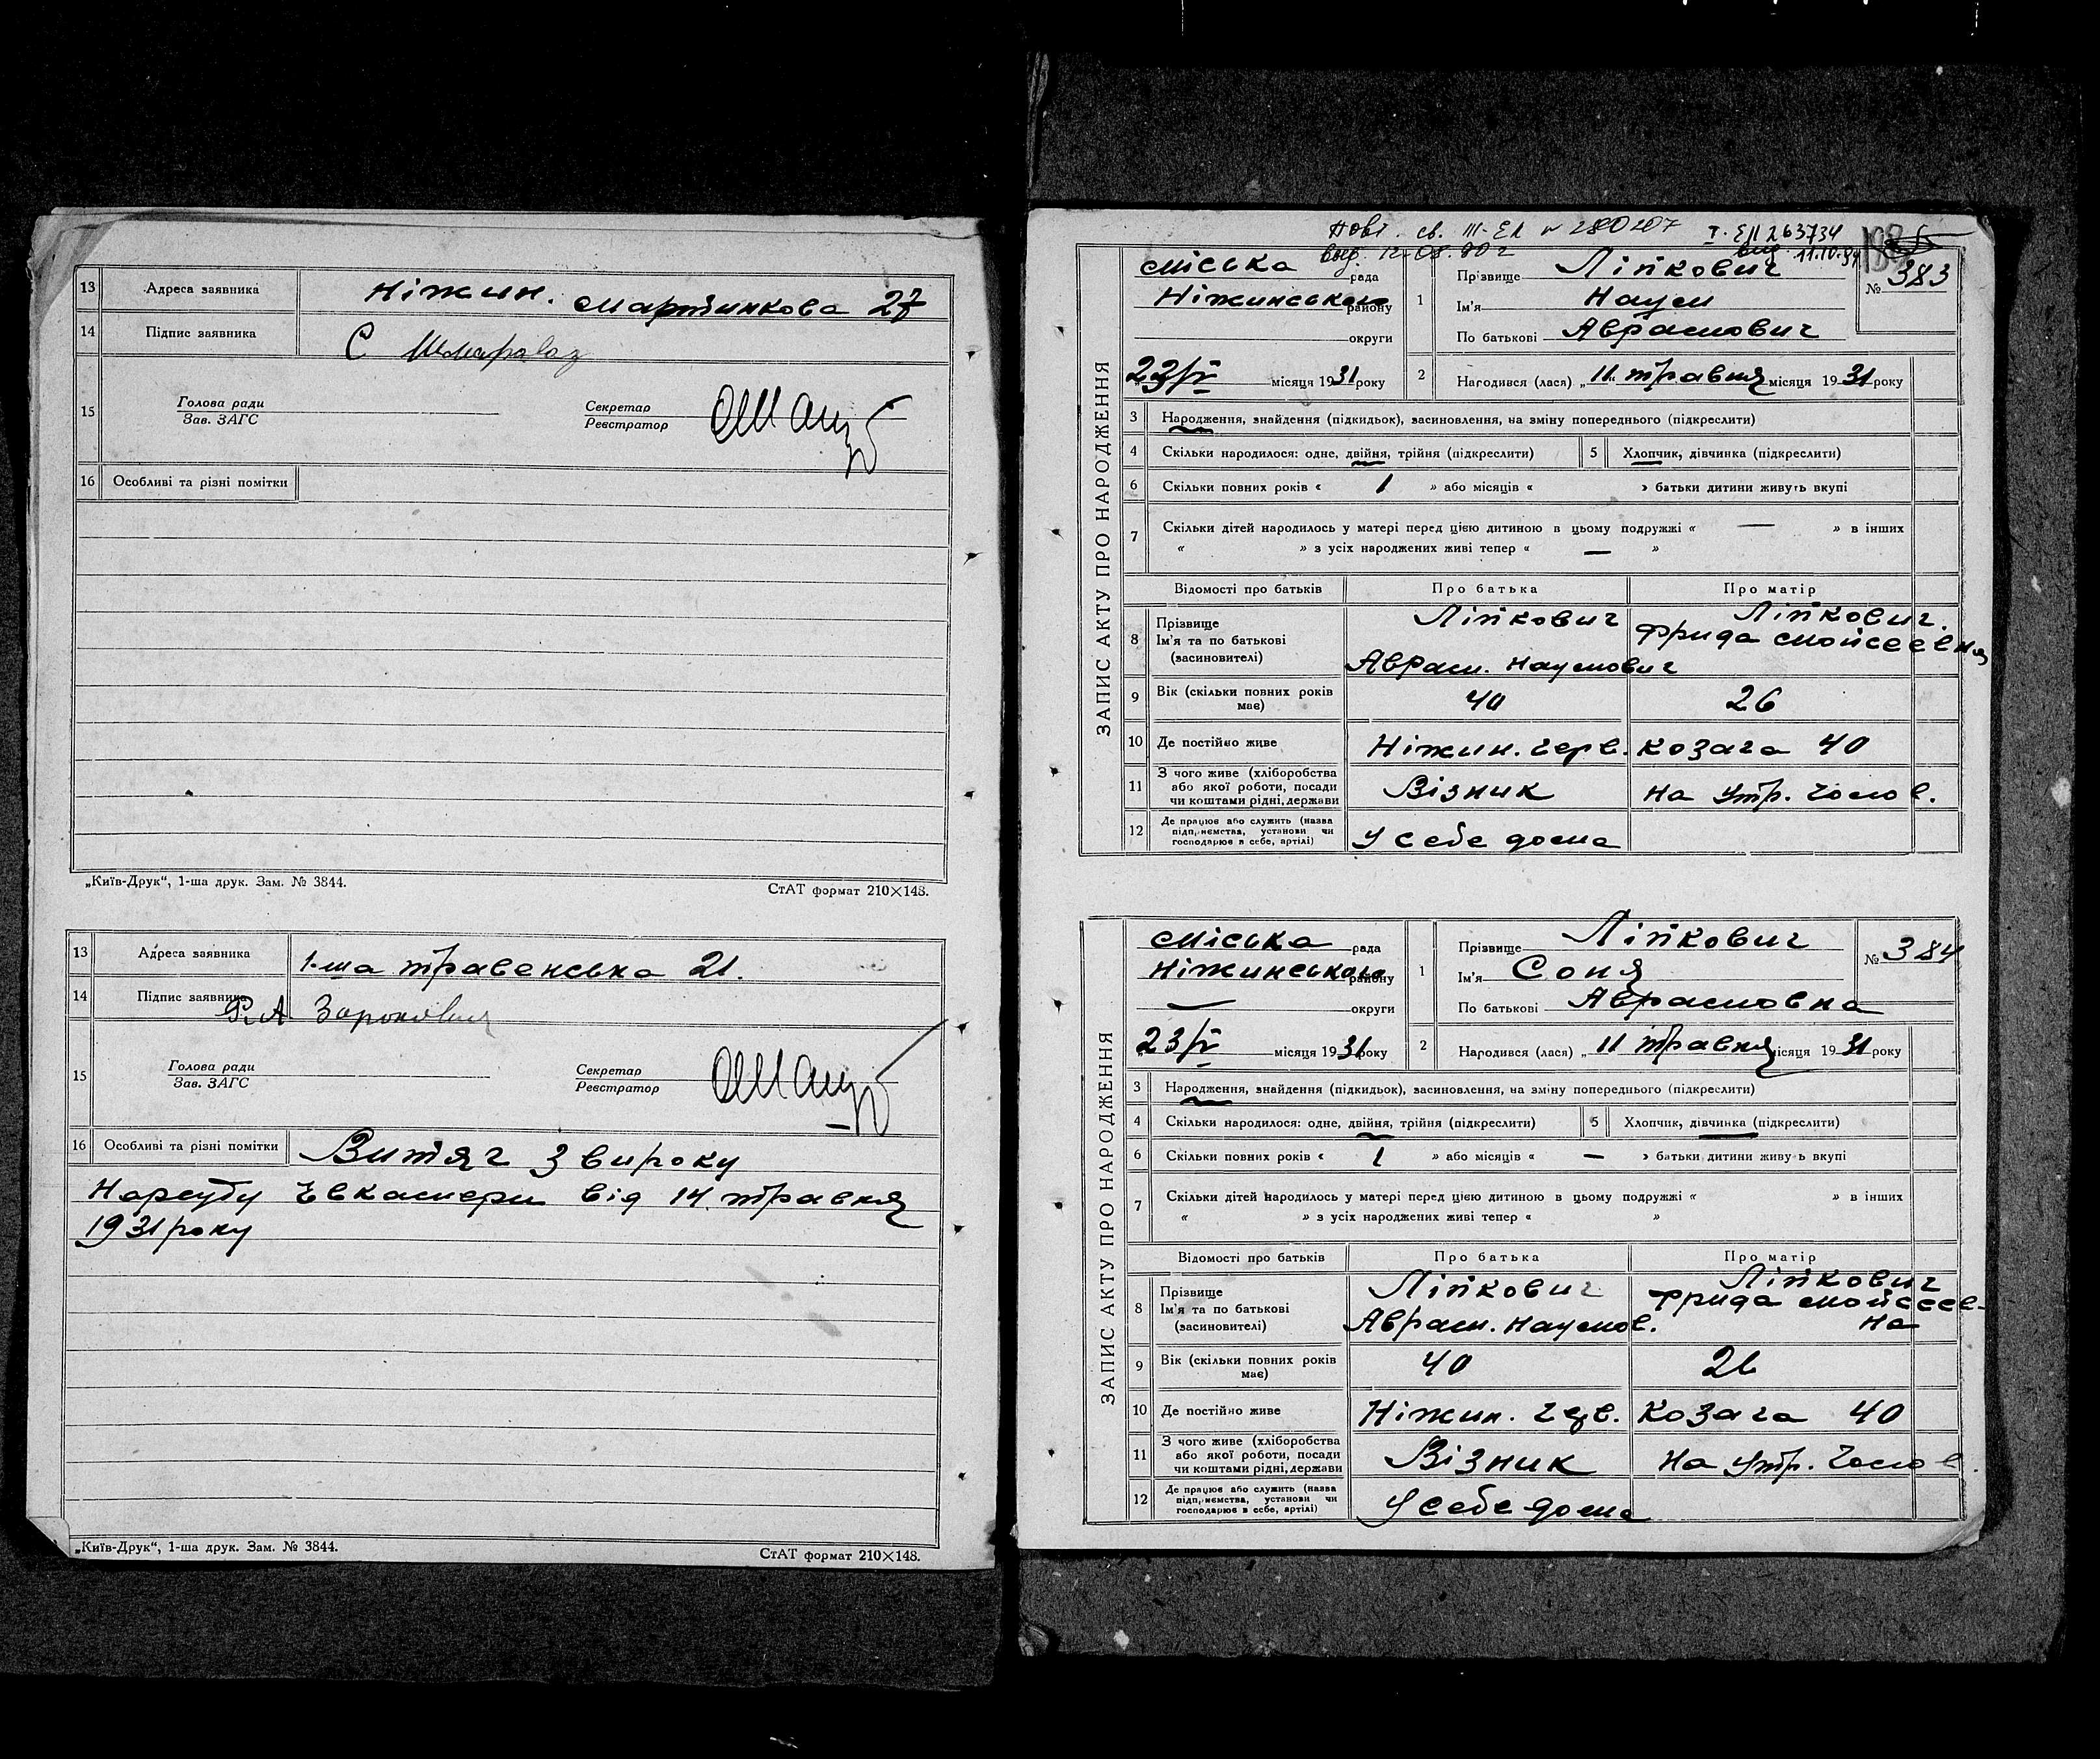 13 Адреса заявника Ніжин. Мартинкова 27
14 Підпис заявника С
15 Голова ради Зав. ЗАГС Секретар Реєстратор
16 Особливі та різні помітки
„Київ-Друк“, 1-ша друк. Зам. № 3844. СтАТ формат 210×148.
13 Адреса заявника 1-ша травенська 21.
14 Підпис заявника Р. А
15 Голова ради Зав. ЗАГС Секретар Реєстратор
16 Особливі та різні помітки Витяг з вироку
Нарсуду Євкамери від 14 травня
1931 року
„Київ-Друк“, 1-ша друк. Зам. № 3844. СтАТ формат 210×148.
Повт. св. III-ЕЛ № 280207 I-ЕЛ 263734
выд. 12.08.80 г выд. 11.10.94
ЗАПИС АКТУ ПРО НАРОДЖЕННЯ
Міська рада
Ніжинського району
округи
23/V місяця 1931 року
1 Прізвище Ліпкович
Ім'я Наум
По батькові Аврамович
№ 383
2 Народився (лася) „ 11. травня місяця 1931 року
3 Народження, знайдення (підкидьок), засиновлення, на зміну попереднього (підкреслити)
4 Скільки народилося: одне, двійня, трійня (підкреслити) 5 Хлопчик, дівчинка (підкреслити)
6 Скільки повних років « 1 » або місяців « » батьки дитини живуть вкупі
7 Скільки дітей народилось у матері перед цією дитиною в цьому подружжі « — » в інших
« » з усіх народжених живі тепер « — »
Відомості про батьків Про батька Про матір
8 Прізвище Ім'я та по батькові (засиновителі) Ліпкович Аврам. Наумович Ліпкович. Фрида Мойсеевна
9 Вік (скільки повних років має) 40 26
10 Де постійно живе Ніжин. Черв. Козача 40
11 З чого живе (хліборобства або якої роботи, посади чи коштами рідні, держави Візник На утр. Чолов.
12 Де працює або служить (назва підприємства, установи чи господарює в себе, артілі) У себе дома
ЗАПИС АКТУ ПРО НАРОДЖЕННЯ
Міська рада
Ніжинського району
— округи
23/V місяця 1931 року
1 Прізвище Ліпкович
Ім'я Соня
По батькові Аврамовна
№ 384
2 Народився (лася) „ 11 травня місяця 1931 року
3 Народження, знайдення (підкидьок), засиновлення, на зміну попереднього (підкреслити)
4 Скільки народилося: одне, двійня, трійня (підкреслити) 5 Хлопчик, дівчинка (підкреслити)
6 Скільки повних років « 1 » або місяців « — » батьки дитини живуть вкупі
7 Скільки дітей народилось у матері перед цією дитиною в цьому подружжі « » в інших
« » з усіх народжених живі тепер « »
Відомості про батьків Про батька Про матір
8 Прізвище Ім'я та по батькові (засиновителі) Ліпкович Аврам. Наумов. Ліпкович Фрида Мойсеев-на
9 Вік (скільки повних років має) 40 26
10 Де постійно живе Ніжин. Черв. Козача 40
11 З чого живе (хліборобства або якої роботи, посади чи коштами рідні, держави Візник На утр. Чолов.
12 Де працює або служить (назва підприємства, установи чи господарює в себе, артілі) У себе дома